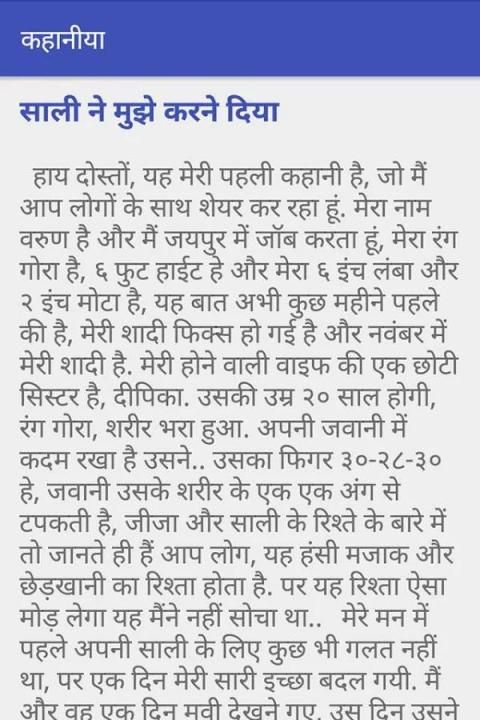 कहानीया
साली ने मुझे करने दिया
हाय दोस्तों, यह मेरी पहली कहानी है, जो मैं
आप लोगों के साथ शेयर कर रहा हूं. मेरा नाम
वरुण है और मैं जयपुर में जॉब करता हूं, मेरा रंग
गोरा है, ६ फुट हाईट हे और मेरा ६ इंच लंबा और
२ इंच मोटा है, यह बात अभी कुछ महीने पहले
की है, मेरी शादी फिक्स हो गई है और नवंबर में
मेरी शादी है. मेरी होने वाली वाइफ की एक छोटी
सिस्टर है, दीपिका. उसकी उम्र २० साल होगी,
रंग गोरा, शरीर भरा हुआ. अपनी जवानी में
कदम रखा है उसने.. उसका फिगर ३०-२८-३०
हे, जवानी उसके शरीर के एक एक अंग से
टपकती है, जीजा और साली के रिश्ते के बारे में
तो जानते ही हैं आप लोग, यह हंसी मजाक और
छेड़खानी का रिश्ता होता है. पर यह रिश्ता ऐसा
मोड़ लेगा यह मैंने नहीं सोचा था.. मेरे मन में
पहले अपनी साली के लिए कुछ भी गलत नहीं
था, पर एक दिन मेरी सारी इच्छा बदल गयी. मैं
और वह एक दिन मूवी देखने गए. उस दिन उसने